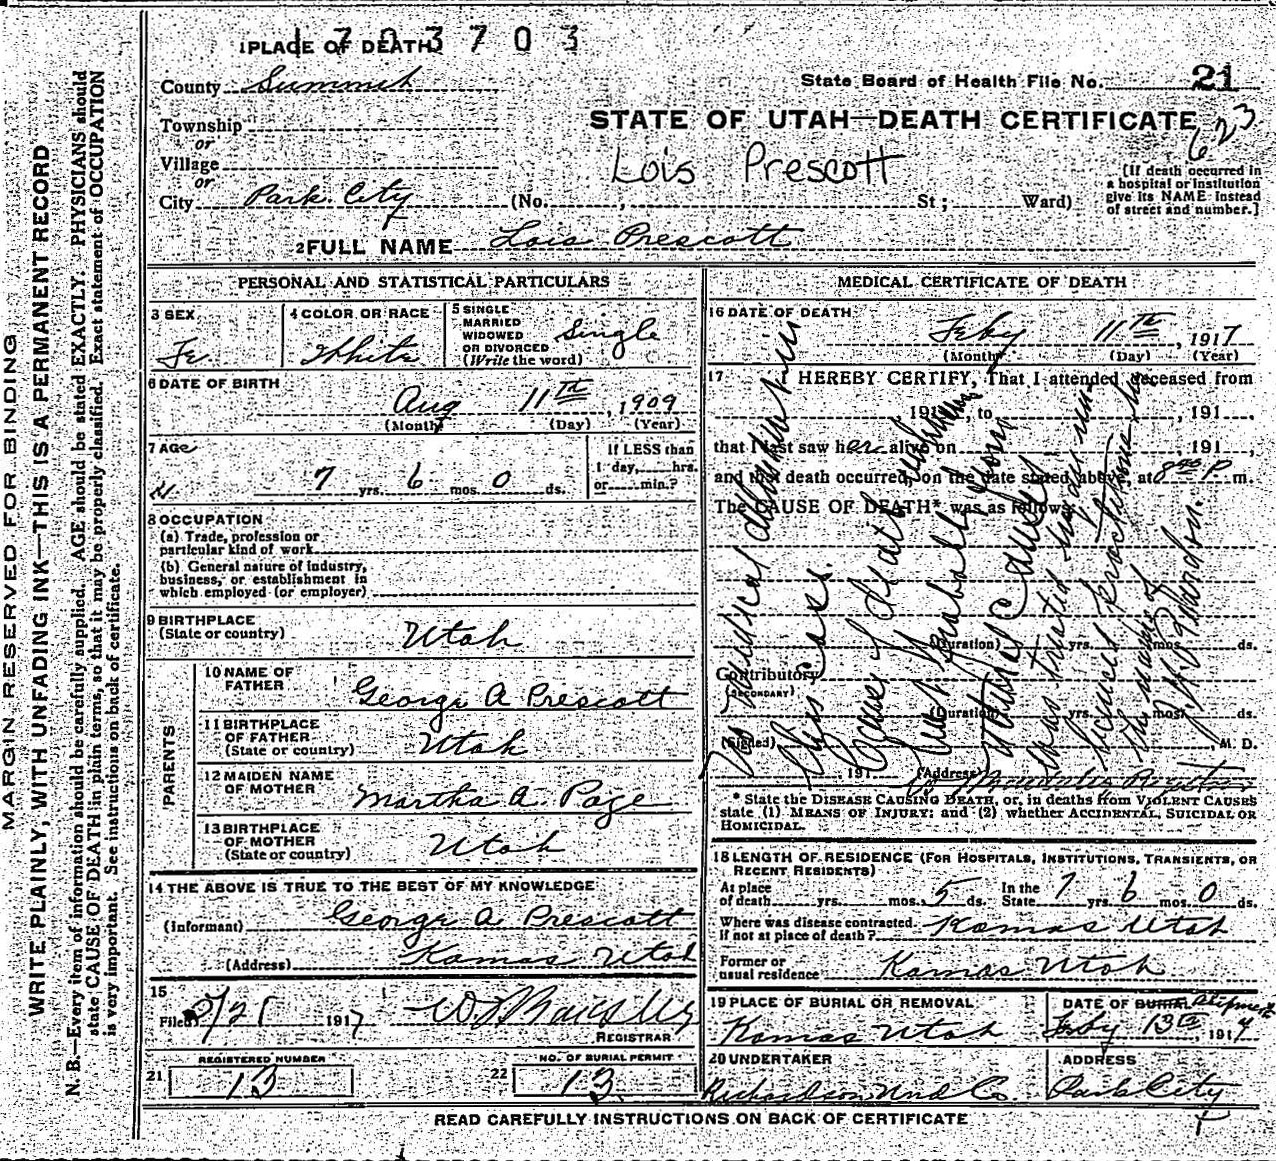 1 PLACE OF DEATH
1 7 0 3 7 0 3
County Summit
State Board of Health File No. 21
Township
or
STATE OF UTAH—DEATH CERTIFICATE
623
Village
or
Lois Prescott
City Park City (No. , St; Ward)
[If death occurred in a hospital or institution give its NAME instead of street and number.]
2 FULL NAME Lois Prescott
MARGIN RESERVED FOR BINDING
WRITE PLAINLY, WITH UNFADING INK—THIS IS A PERMANENT RECORD
N. B.—Every item of information should be carefully supplied. AGE should be stated EXACTLY. PHYSICIANS should
state CAUSE OF DEATH in plain terms, so that it may be properly classified. Exact statement of OCCUPATION
is very important. See instructions on back of certificate.
PERSONAL AND STATISTICAL PARTICULARS
3 SEX
Fe
4 COLOR OR RACE
White
5 SINGLE
MARRIED
WIDOWED
OR DIVORCED
(Write the word)
Single
6 DATE OF BIRTH
Aug 11TH, 1909
(Month) (Day) (Year)
7 AGE
7 yrs. 6 mos. 0 ds.
If LESS than
1 day, hrs.
or min.?
8 OCCUPATION
(a) Trade, profession or
particular kind of work
(b) General nature of industry,
business, or establishment in
which employed (or employer)
9 BIRTHPLACE
(State or country)
Utah
PARENTS
10 NAME OF
FATHER
George A Prescott
11 BIRTHPLACE
OF FATHER
(State or country)
Utah
12 MAIDEN NAME
OF MOTHER
Martha A. Page
13 BIRTHPLACE
OF MOTHER
(State or country)
Utah
14 THE ABOVE IS TRUE TO THE BEST OF MY KNOWLEDGE
(Informant) George A Prescott
(Address) Kamas Utah
15
Filed 2/21 1917
REGISTRAR
REGISTERED NUMBER
21 13
NO. OF BURIAL PERMIT
22 13.
MEDICAL CERTIFICATE OF DEATH
16 DATE OF DEATH
Feby 11TH, 1917
(Month) (Day) (Year)
17 HEREBY CERTIFY, That I attended deceased from
, 191 , to , 191 ,
that I last saw her alive on , 191 ,
and that death occurred, on the date stated above, at P m.
The CAUSE OF DEATH* was as follows:
(Duration) yrs. mos. ds.
Contributory
(SECONDARY)
(Duration) yrs. mos. ds.
(Signed) , M. D.
, 191 (Address)
No medical attendant in
this case.
Cause of death
natural causes
* State the DISEASE CAUSING DEATH, or, in deaths from VIOLENT CAUSES
state (1) MEANS OF INJURY; and (2) whether ACCIDENTAL, SUICIDAL OR
HOMICIDAL.
18 LENGTH OF RESIDENCE (FOR HOSPITALS, INSTITUTIONS, TRANSIENTS, OR
RECENT RESIDENTS)
At place
of death yrs. mos. 5 ds.
In the
State 7 yrs. 6 mos. 0 ds.
Where was disease contracted,
if not at place of death? Kamas Utah
Former or
usual residence Kamas Utah
19 PLACE OF BURIAL OR REMOVAL
Kamas Utah
DATE OF BURIAL Shipment
Feby 13TH, 1917
20 UNDERTAKER
Richardson Und Co
ADDRESS
Park City
READ CAREFULLY INSTRUCTIONS ON BACK OF CERTIFICATE